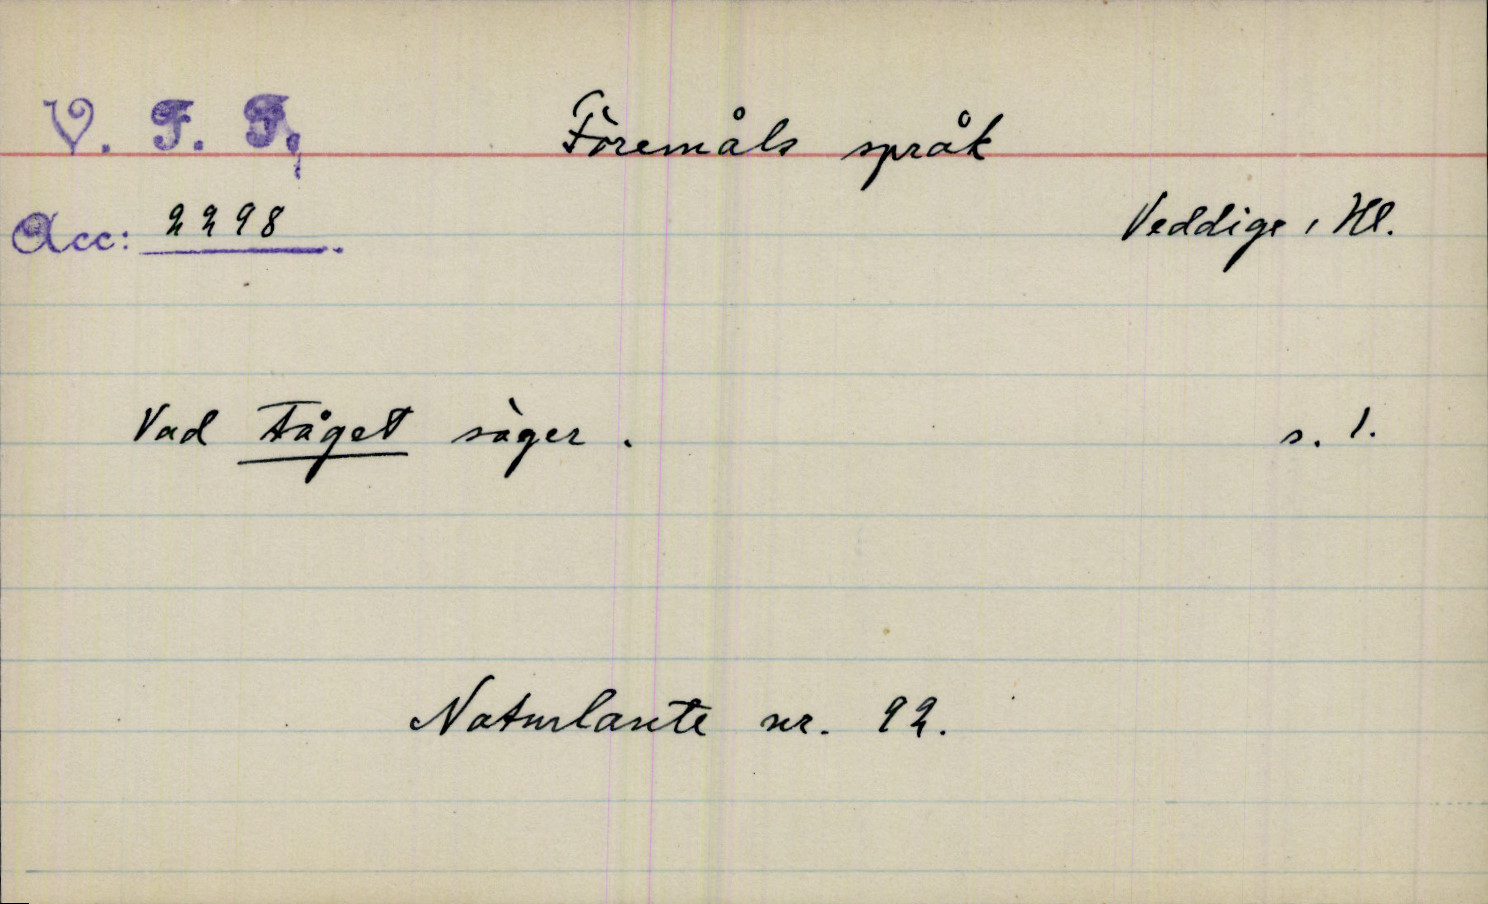 V. F. F. Föremåls språk
Acc: 2298. Veddige, Hl.
Vad tåget säger. s. 1.
Naturlante nr. 92.